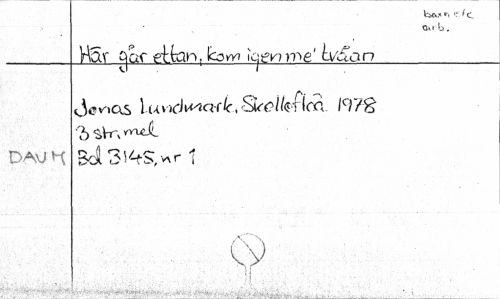 barn etc
arb.
Här går ettan, kom igen me' tvåan
Jonas Lundmark, Skellefteå 1978
3 str, mel
DAUM Bd 3145, nr 1